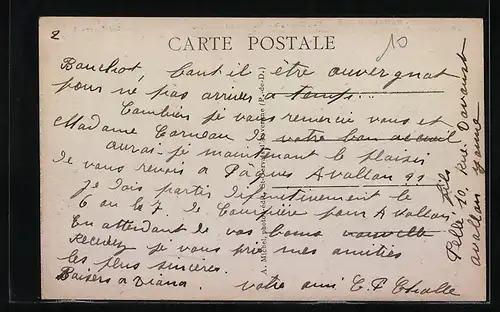 2
CARTE POSTALE
10
faut il être auvergnat
pour ne pas arriver a temps...
Combien je vous remercie vous et
Madame de votre bon accueil
aurai-je maintenant le plaisir
de vous revoir a Paques Avallon
je dois partir definitivement le
6 ou la 7 de pour Avallon
En attendant de vos bonnes nouvelle
Recevez je vous prie mes amities
les plus sincères.
Baisers a Diana. votre ami
A. Michel, phot.
10, Rue
Avallon Yonne